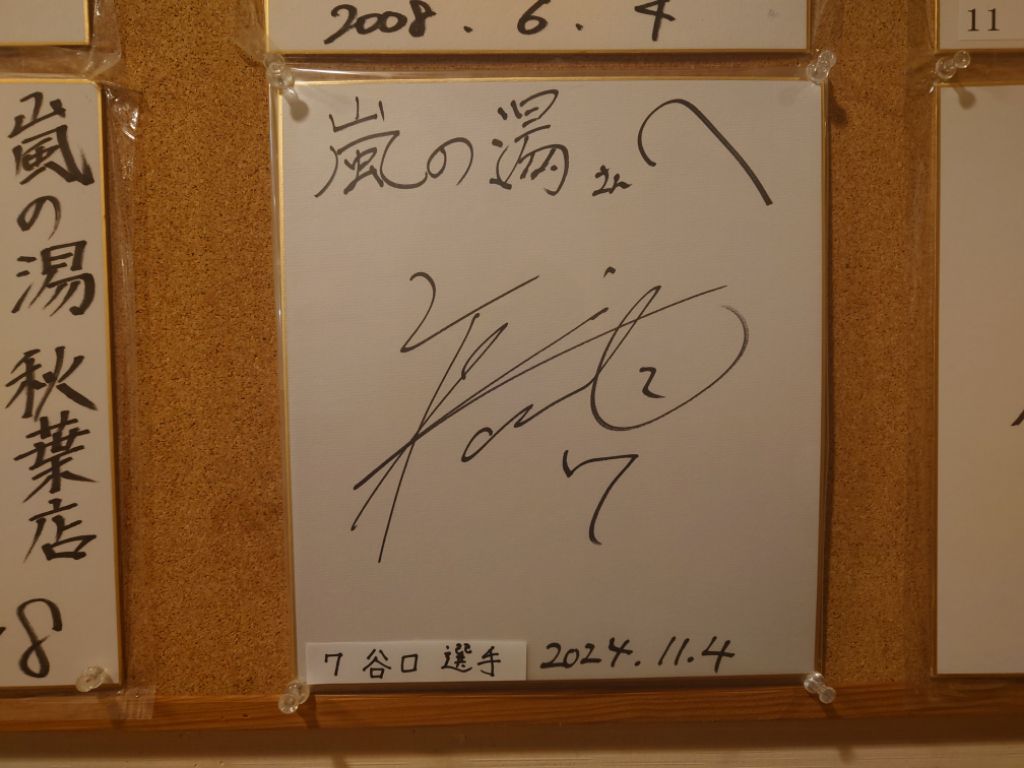 2008.6.4
11
嵐の湯
秋葉店
8
嵐の湯さんへ
7
7 谷口 選手
2024.11.4